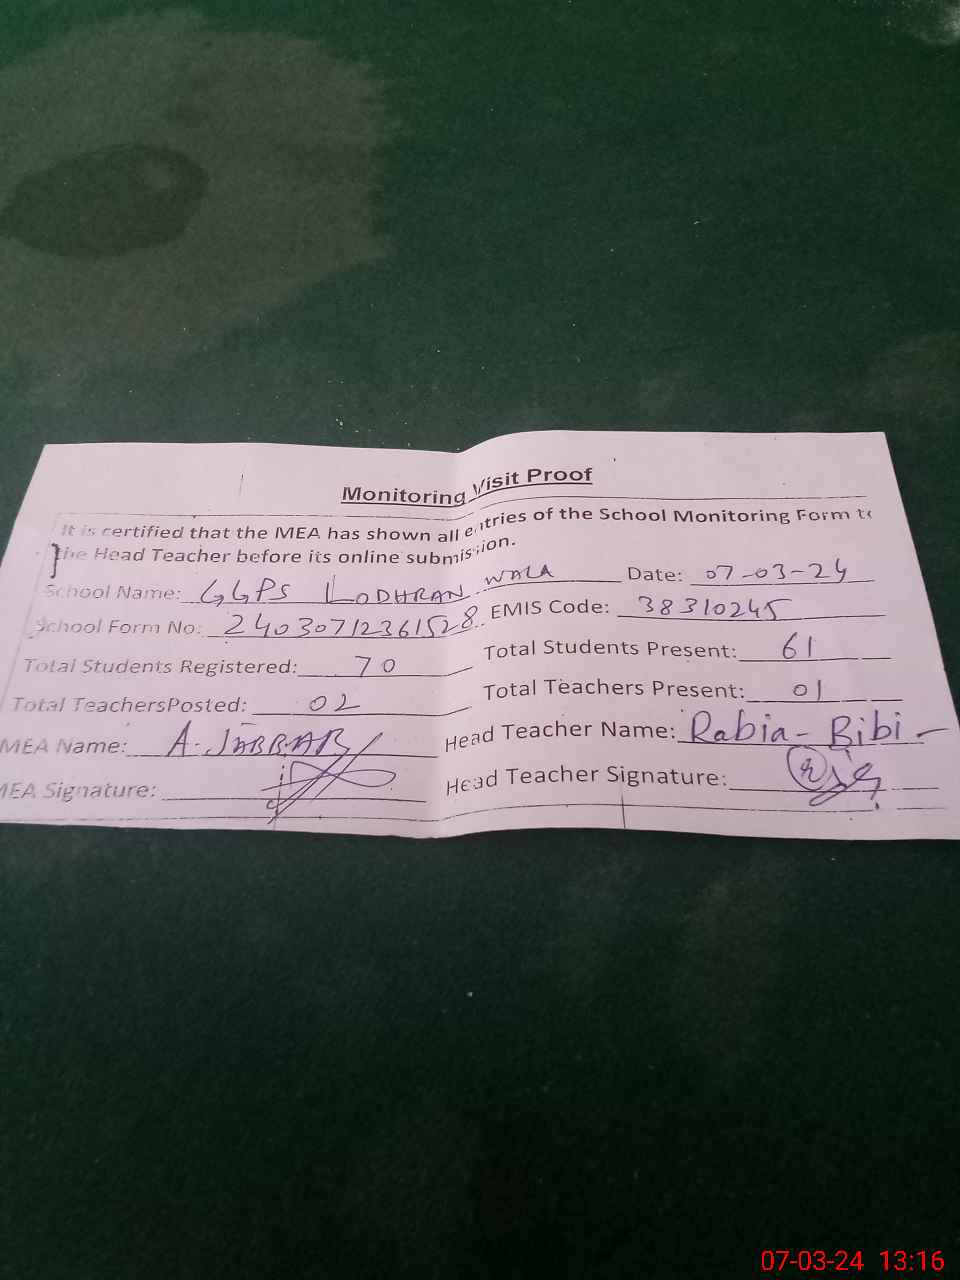 Monitoring Visit Proof
It is certified that the MEA has shown all entries of the School Monitoring Form to
the Head Teacher before its online submission.
School Name: GGPS LODHRAN WALA Date: 07-03-24
School Form No: 24030712361528 EMIS Code: 38310245
Total Students Registered: 70 Total Students Present: 61
Total TeachersPosted: 02 Total Teachers Present: 01
MEA Name: A. JABBAR Head Teacher Name: Rabia - Bibi -
MEA Signature: Head Teacher Signature:
07-03-24 13:16